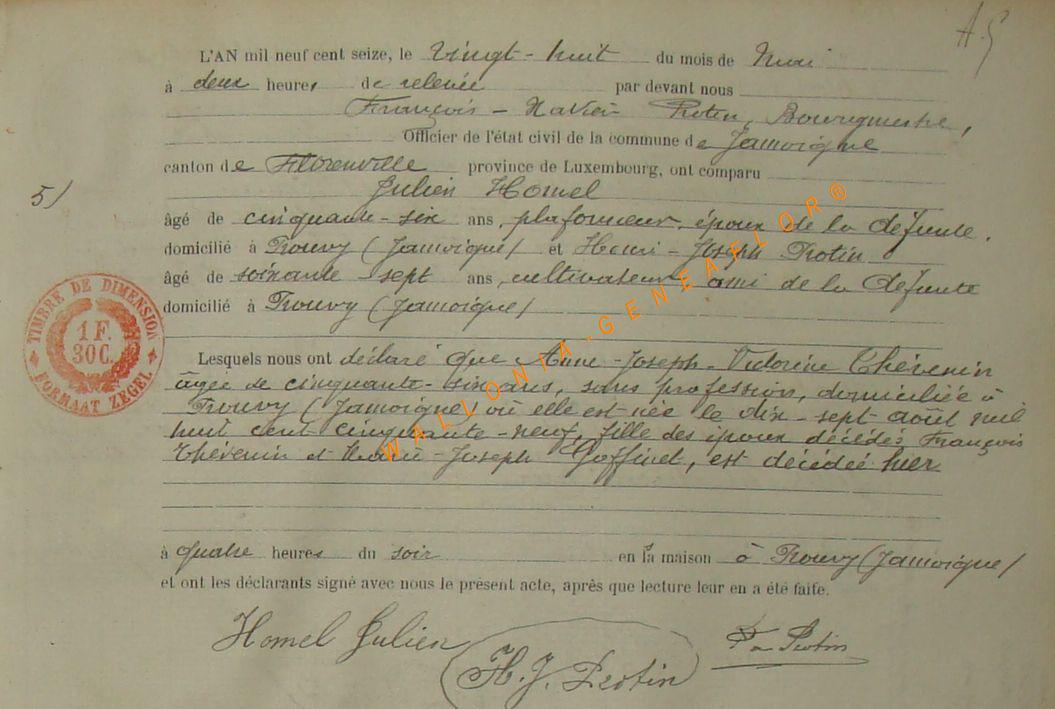 A.5
L'AN mil neuf cent seize, le vingt-huit du mois de Mai
à deux heures de relevée par devant nous
François-Xavier Protin, Bourgmestre,
Officier de l'état civil de la commune de Jamoigne
canton de Florenville province de Luxembourg, ont comparu
Julien Homel
5/
âgé de cinquante-six ans, plafonneur, époux de la défunte,
domicilié à Prouvy (Jamoigne) et Henri-Joseph Protin
âgé de soixante-sept ans, cultivateur ami de la défunte
domicilié à Prouvy (Jamoigne)
TIMBRE DE DIMENSION
1 F.
30 C.
FORMAAT ZEGEL
Lesquels nous ont déclaré que Anne-Joseph-Victorine Thévenin
âgée de cinquante-six ans, sans profession, domiciliée à
Prouvy (Jamoigne) où elle est née le dix-sept août mil
huit cent cinquante-neuf, fille des époux décédés François
Thévenin et Marie-Joseph Goffinet, est décédée hier
à quatre heures du soir en sa maison à Prouvy (Jamoigne)
et ont les déclarants signé avec nous le présent acte, après que lecture leur en a été faite.
Homel Julien
H. J. Protin
Protin
WALLONIA-GENEAFIOR®